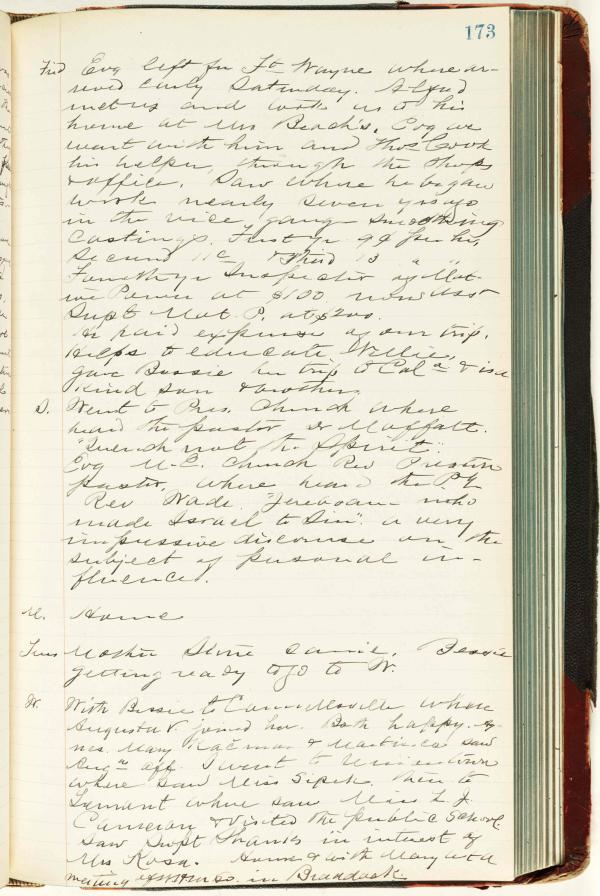 173
Frid Evg left for Ft Wayne where ar-
rived early Saturday. Alfred
met us and took us to his
home at Mrs Beach's. Evg we
went with him and Thos Cook
his helper, through the Shops
& office. Saw where he began
work nearly seven yrs ago
in the vice gang smoothing
Castings. First yr 9¢ per hr,
Second 11¢ & Third 13 " "
Fourth yr Inspector of Mot-
ive Power at $100 now Asst
Supt Mot. P. at $200.
He paid expenses of our trip.
Helps to educate Willie,
gave Bessie her trip to Cala & is a
kind son & brother.
S. Went to Pres. Church where
heard the pastor Dr Moffatt.
"Quench not the Spirit".
Evg M.E. Church Rev Preston
pastor, where heard the P.E.
Rev Wade. "Jeroboam who
made Israel to Sin". a very
impressive discourse on the
subject of personal in-
fluences.
M. Home
Tues Mother Stone came. Bessie
getting ready to go to W.
W. With Bessie to Connellsville where
Augusta V. joined her. Both happy.
Mary & saw
Augta off. I went to Uniontown
where saw Miss Sipek. then to
Lemont where saw Miss L. J.
Cameron & visited the public School.
Saw Supt in interest of
Mrs Rosa. Home & with Mary attd
meeting of in Braddock.